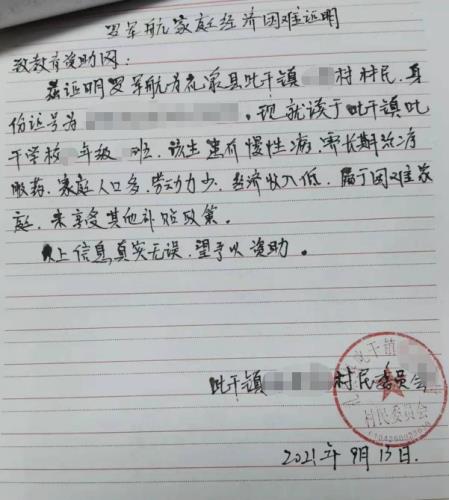 罗军航家庭经济困难证明
致教育资助网：
兹证明罗军航为礼泉县叱干镇 村村民,身
份证号为 。现就读于叱干镇叱
干学校 年级 班,该生患有慢性病,需长期治疗
服药,家庭人口多,劳动力少,经济收入低,属于困难家
庭,未享受其他补贴政策。
以上信息真实无误,望予以资助。
叱干镇 村民委员会
叱干镇
村民委员会
2021年9月13日.